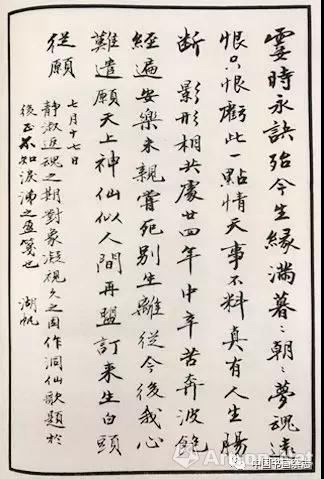 霎時永訣殆今生緣滿暮〻朝〻夢魂遠
恨只恨虧此一點情天事不料真有人生腸
断 影形相共處廿四年中辛苦奔波飽
經遍安樂未親嘗死別生離從今後我心
難遣願天上神仙似人間再盟訂來生白頭
從願
七月十七日
靜淑返魂之期對象凝視久之因作洞仙歌題於
後正不知淚涕之盈箋也 湖帆